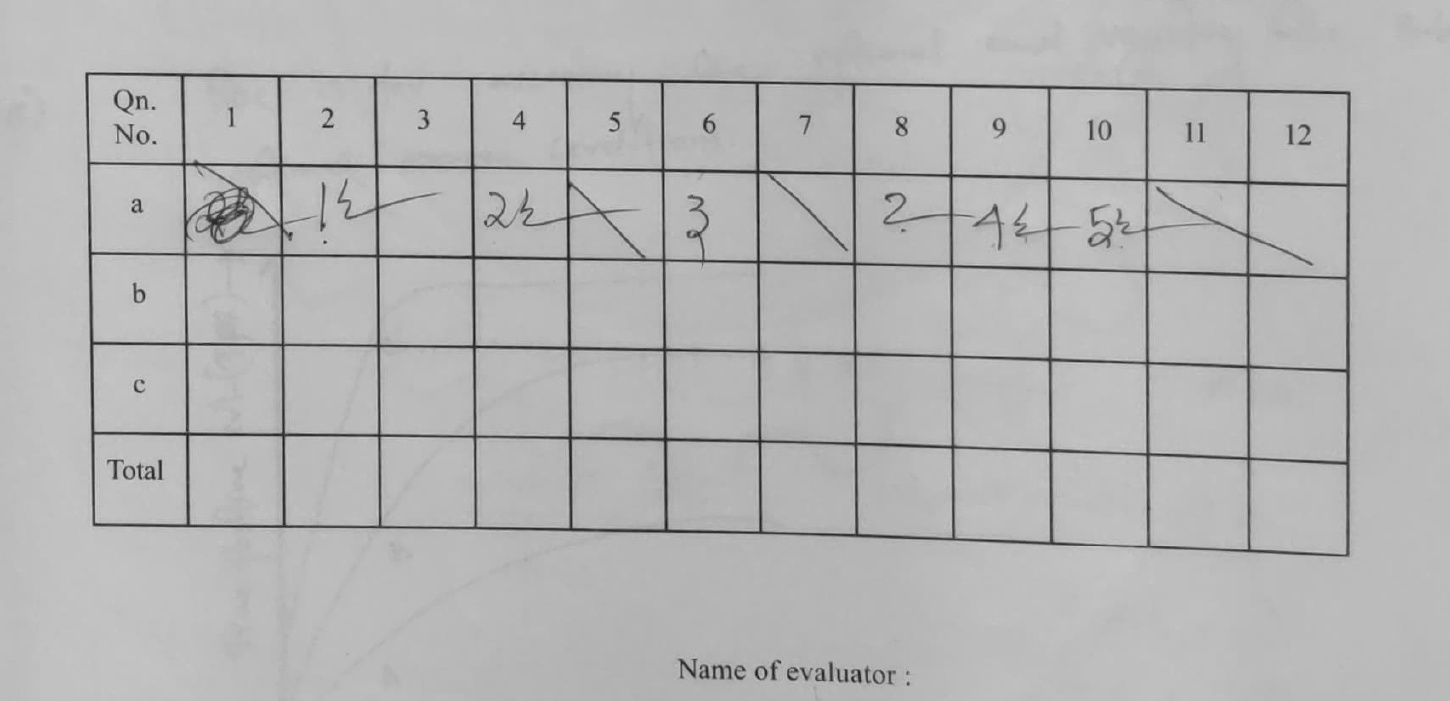 Qn. No. 1 2 3 4 5 6 7 8 9 10 11 12
a 1½ 2½ 3 2 4½ 5½
b
c
Total
Name of evaluator :